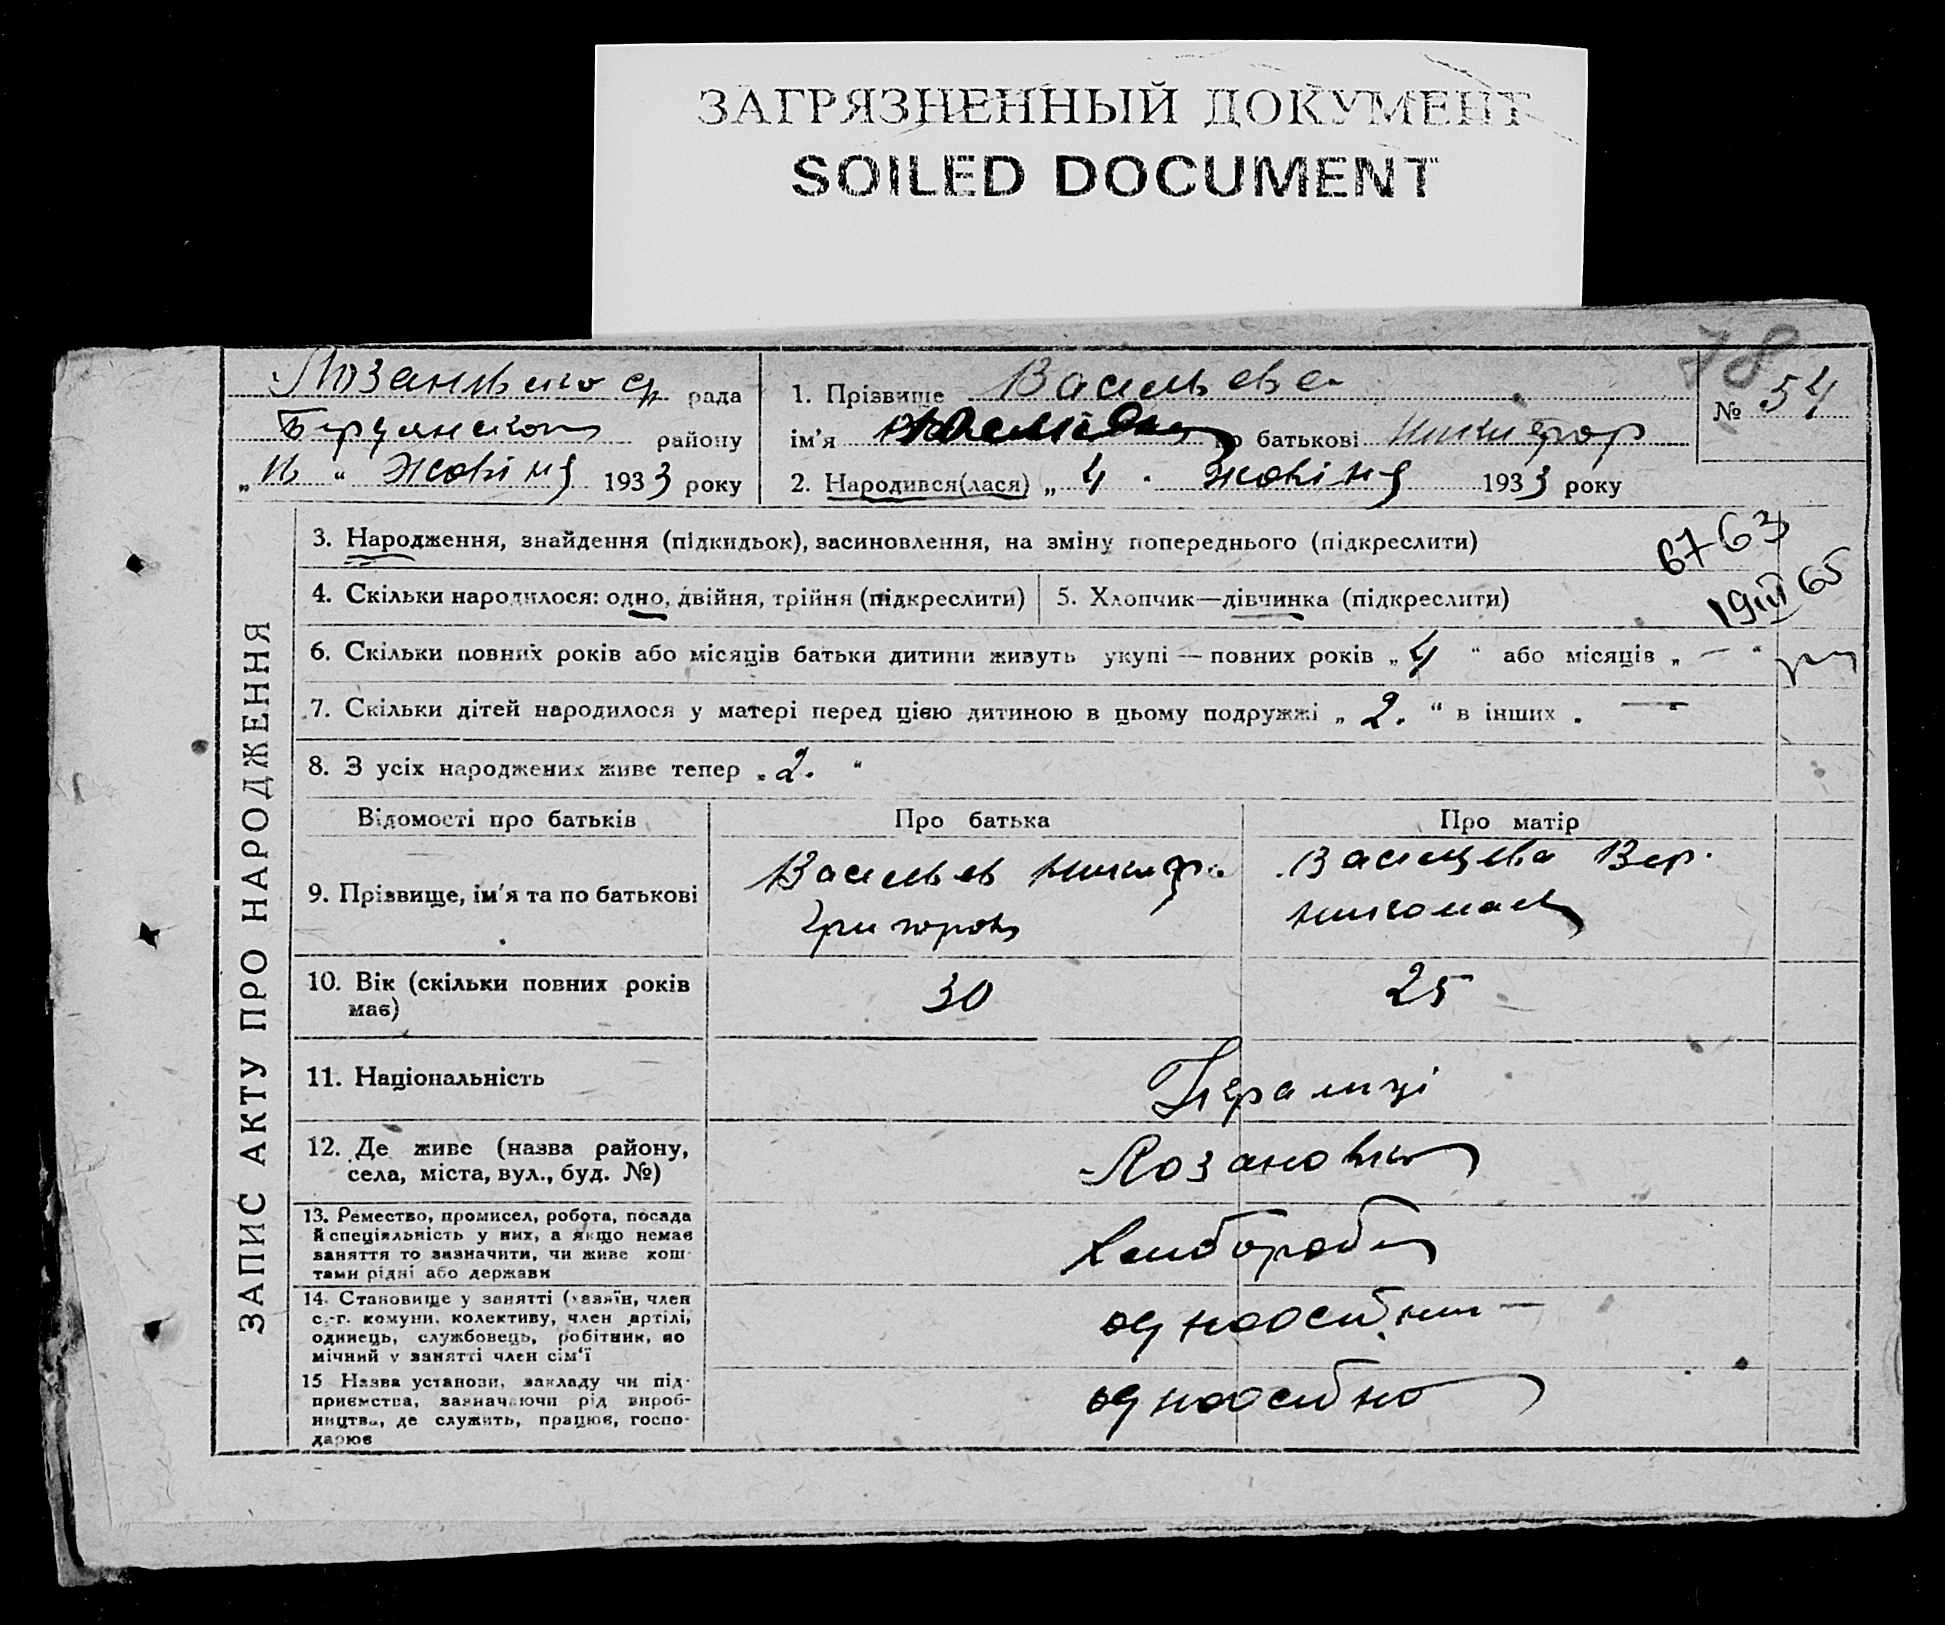 ЗАГРЯЗНЕННЫЙ ДОКУМЕНТ
SOILED DOCUMENT
78
рада
району
" Жовтня 1933 року
1. Прізвище Васильева
№ 54
ім'я по батькові
2. Народився(лася) „ 4 " Жовтня 1933 року
ЗАПИС АКТУ ПРО НАРОДЖЕННЯ
3. Народження, знайдення (підкидьок), засиновлення, на зміну попереднього (підкреслити)
6763
19 III 65
4. Скільки народилося: одно, двійня, трійня (підкреслити)
5. Хлопчик—дівчинка (підкреслити)
6. Скільки повних років або місяців батьки дитини живуть укупі — повних років „ 4 “ або місяців „ — “
7. Скільки дітей народилося у матері перед цією дитиною в цьому подружжі „ 2. “ в інших „ — “
8. З усіх народжених живе тепер „ 2. “
Відомості про батьків
Про батька
Про матір
9. Прізвище, ім'я та по батькові
Васильев
Вер.
10. Вік (скільки повних років
має)
30
25
11. Національність
12. Де живе (назва району,
села, міста, вул., буд. №)
13. Ремество, промисел, робота, посада
й спеціяльність у них, а якщо немає
заняття то зазначити, чи живе кош-
тами рідні або держави
Хлібороби
14. Становище у занятті (хазяїн, член
с.-г. комуни, колективу, член артілі,
одинець, службовець, робітник, по
мічний у занятті член сім'ї
15 Назва установи, закладу чи під-
приємства, зазначаючи рід вироб-
ництва, де служить, працює, госпо-
дарює
одноосібно